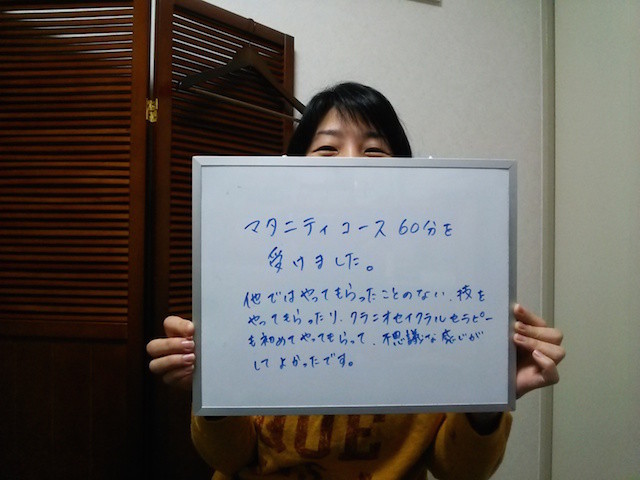 マタニティコース 60分を
受けました。
他ではやってもらったことのない、技を
やってもらったり、クラニオセイクラルセラピー
も初めてやってもらって、不思議な感じが
してよかったです。